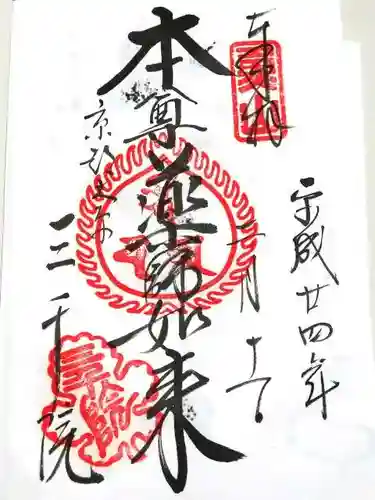 奉拝
平成廿四年
二月十一
本尊薬師如来
京都大原
三千院